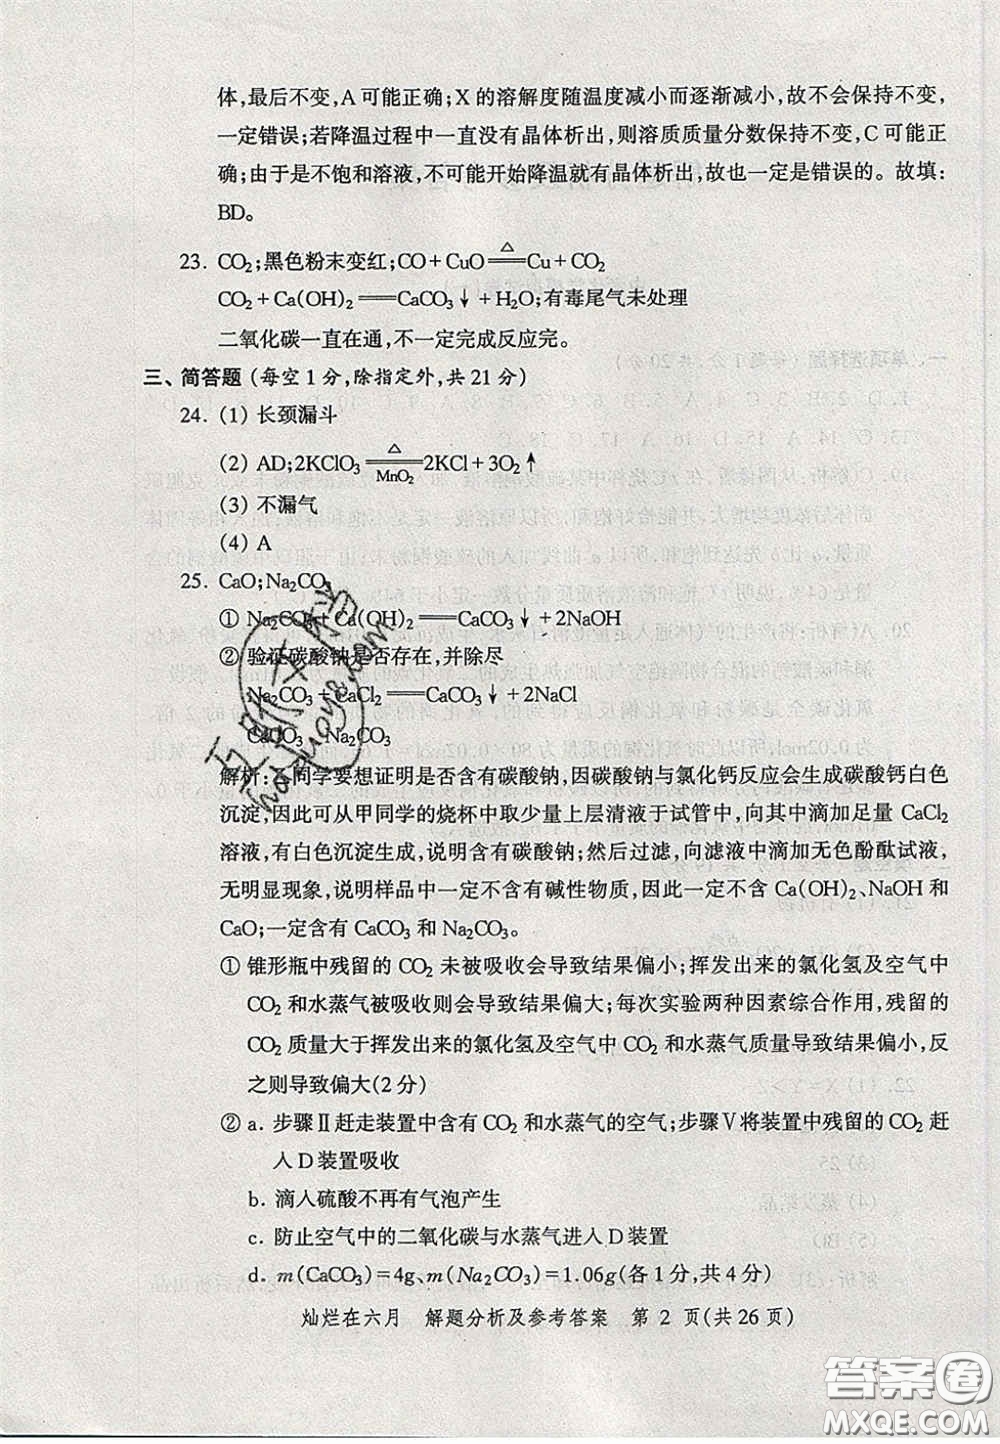 体,最后不变,A 可能正确;X 的溶解度随温度减小而逐渐减小,故不会保持不变,
一定错误;若降温过程中一直没有晶体析出,则溶质质量分数保持不变,C 可能正
确;由于是不饱和溶液,不可能开始降温就有晶体析出,故也一定是错误的。故填:
BD。
23. CO₂;黑色粉末变红;CO+CuO══△══Cu+CO₂
CO₂+Ca(OH)₂══CaCO₃↓+H₂O;有毒尾气未处理
二氧化碳一直在通,不一定完成反应完。
三、简答题 (每空 1 分,除指定外,共 21 分)
24. (1) 长颈漏斗
(2) AD;2KClO₃══△/MnO₂══2KCl+3O₂↑
(3) 不漏气
(4) A
25. CaO;Na₂CO₃
① Na₂CO₃+Ca(OH)₂══CaCO₃↓+2NaOH
② 验证碳酸钠是否存在,并除尽
Na₂CO₃+CaCl₂══CaCO₃↓+2NaCl
CaCO₃ Na₂CO₃
解析:乙同学要想证明是否含有碳酸钠,因碳酸钠与氯化钙反应会生成碳酸钙白色
沉淀,因此可从甲同学的烧杯中取少量上层清液于试管中,向其中滴加足量 CaCl₂
溶液,有白色沉淀生成,说明含有碳酸钠;然后过滤,向滤液中滴加无色酚酞试液,
无明显现象,说明样品中一定不含有碱性物质,因此一定不含 Ca(OH)₂、NaOH 和
CaO;一定含有 CaCO₃ 和 Na₂CO₃。
① 锥形瓶中残留的 CO₂ 未被吸收会导致结果偏小;挥发出来的氯化氢及空气中
CO₂ 和水蒸气被吸收则会导致结果偏大;每次实验两种因素综合作用,残留的
CO₂ 质量大于挥发出来的氯化氢及空气中 CO₂ 和水蒸气质量导致结果偏小,反
之则导致偏大(2 分)
② a. 步骤Ⅱ赶走装置中含有 CO₂ 和水蒸气的空气;步骤Ⅴ将装置中残留的 CO₂ 赶
入 D 装置吸收
b. 滴入硫酸不再有气泡产生
c. 防止空气中的二氧化碳与水蒸气进入 D 装置
d. m(CaCO₃)=4g、m(Na₂CO₃)=1.06g(各 1 分,共 4 分)
灿烂在六月 解题分析及参考答案 第 2 页(共 26 页)
答案圈
MXQE.COM